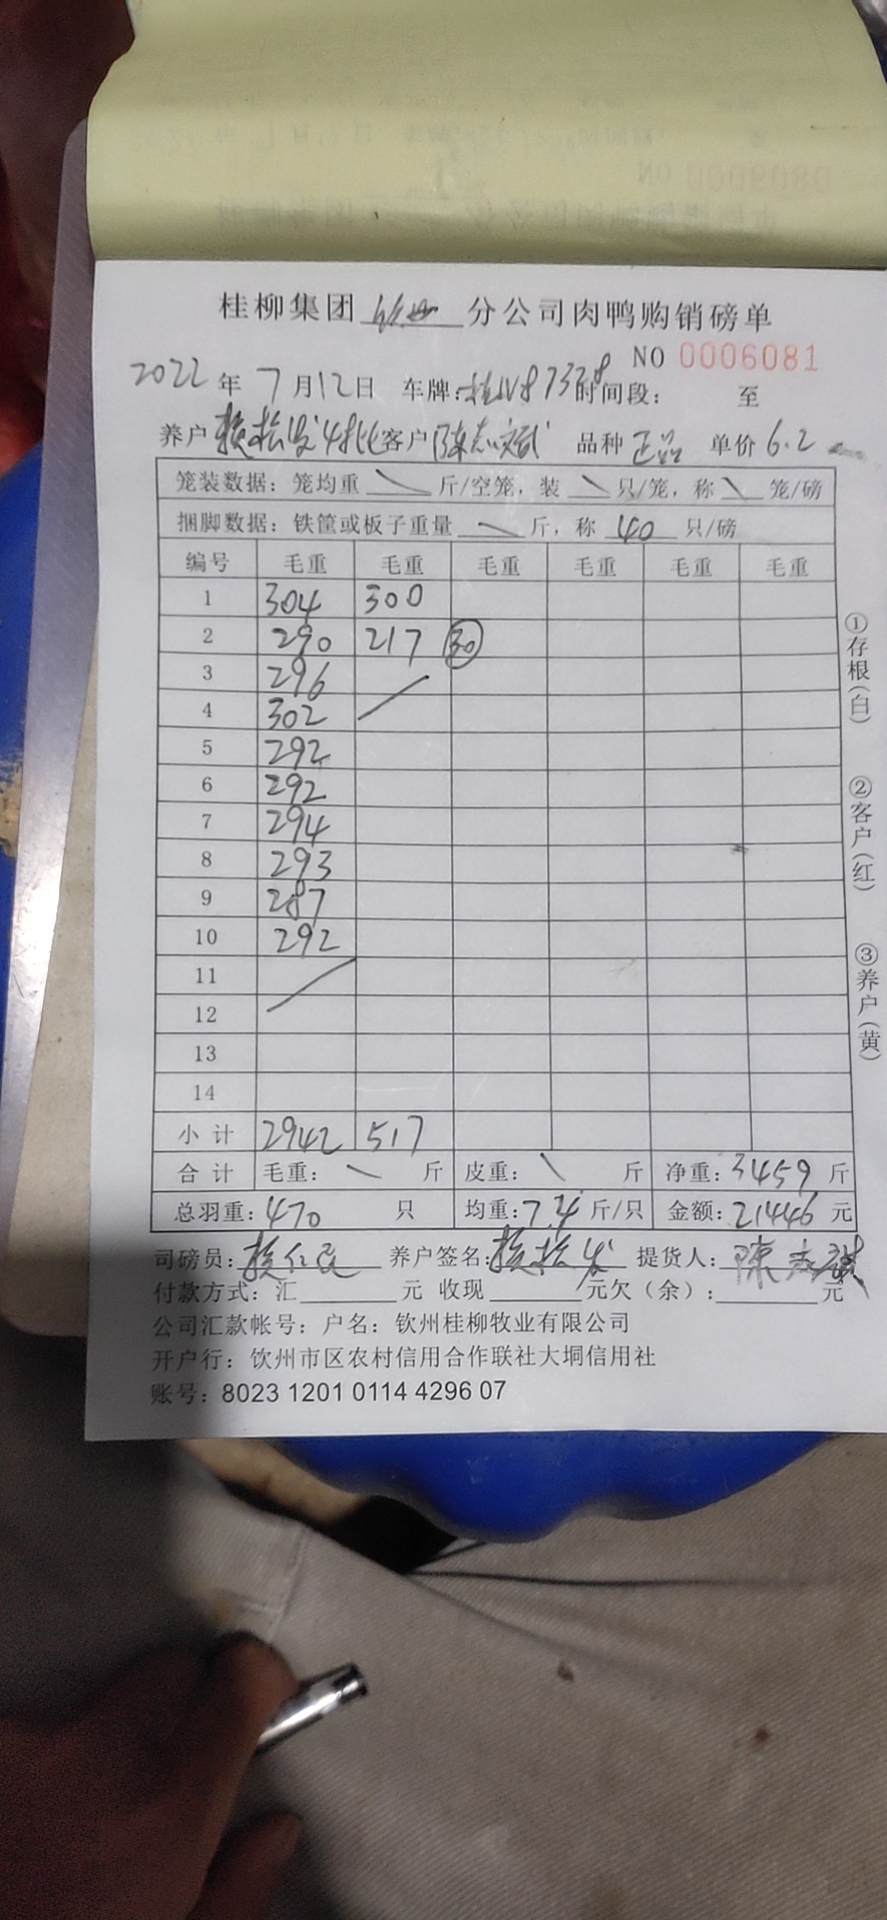 桂柳集团 钦州 分公司肉鸭购销磅单
NO 0006081
2022 年 7 月 12 日 车牌: 时间段: 至
养户 赖松发 4批 客户 陈志斌 品种 正品 单价 6.2
笼装数据: 笼均重 \ 斤/空笼, 装 \ 只/笼, 称 \ 笼/磅
捆脚数据: 铁筐或板子重量 \ 斤, 称 40 只/磅
编号 毛重 毛重 毛重 毛重 毛重 毛重
1 304 300
2 290 217 30
3 296
4 302
5 292
6 292
7 294
8 293
9 287
10 292
11
12
13
14
小计 2942 517
合计 毛重: \ 斤 皮重: \ 斤 净重: 3459 斤
总羽重: 470 只 均重: 7.4 斤/只 金额: 21446 元
司磅员: 赖仁民 养户签名: 赖松发 提货人: 陈志斌
付款方式: 汇 元 收现 元欠(余): 元
公司汇款帐号: 户名: 钦州桂柳牧业有限公司
开户行: 钦州市区农村信用合作联社大垌信用社
账号: 8023 1201 0114 4296 07
①存根(白)
②客户(红)
③养户(黄)